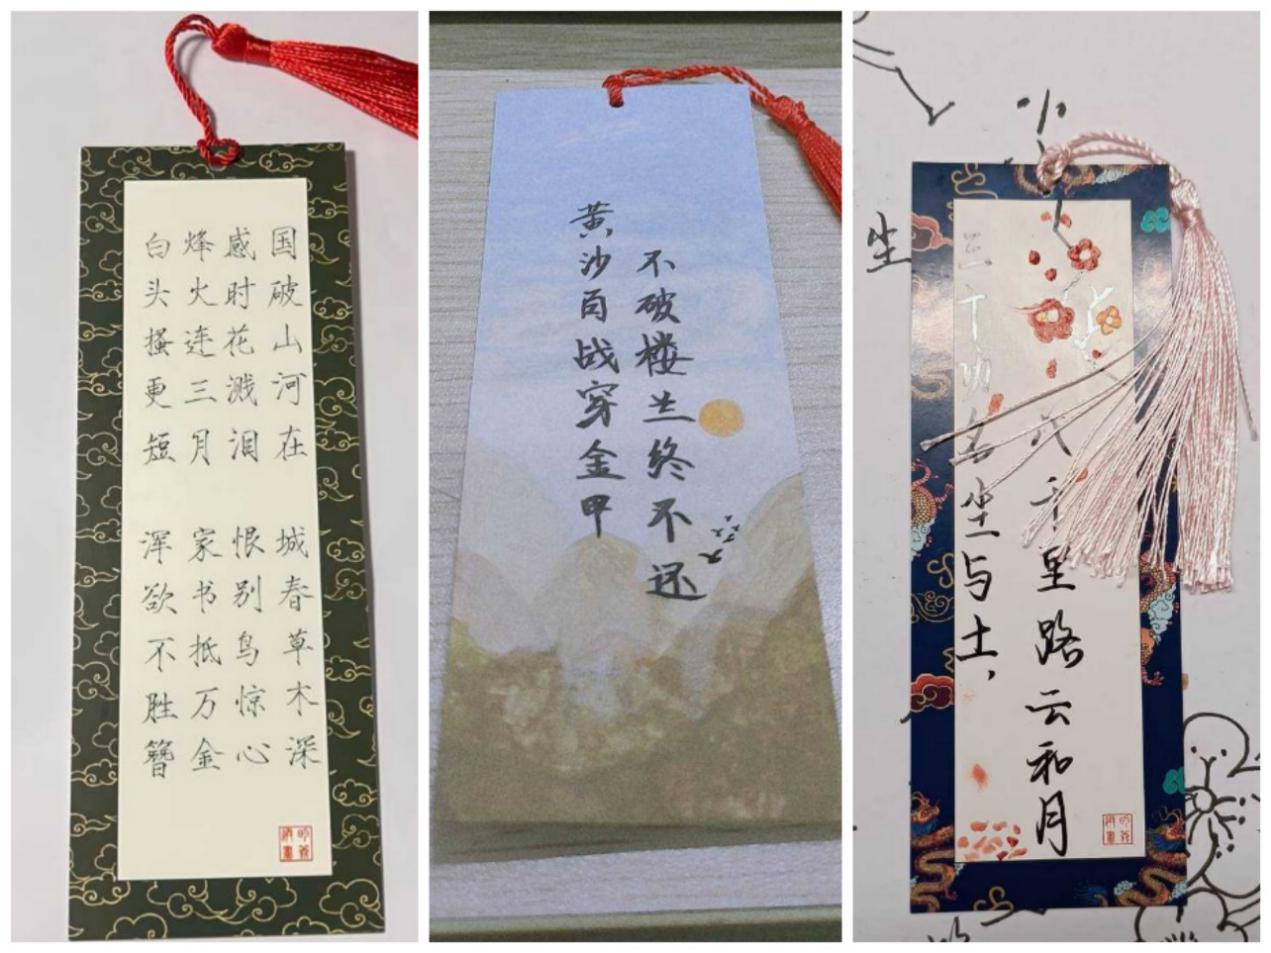 国破山河在 城春草木深
感时花溅泪 恨别鸟惊心
烽火连三月 家书抵万金
白头搔更短 浑欲不胜簪
黄沙百战穿金甲
不破楼兰终不还
三十功名尘与土，
八千里路云和月
尘